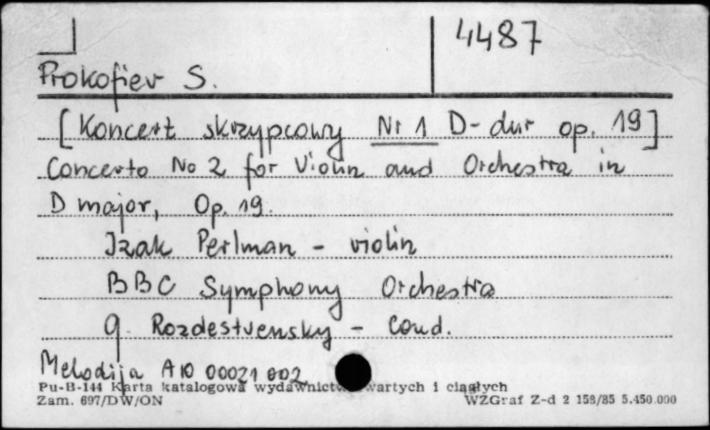 4487
Prokofiev S.
[Koncert skrzypcowy Nr 1 D-dur op. 19]
Concerto No 2 for Violin and Orchestra in
D major, Op. 19.
Izak Perlman - violin
BBC Symphony Orchestra
G. Rozdestvensky - Cond.
Melodija A10 00021 002
Pu-B-144 Karta katalogowa wydawnictw zwartych i ciągłych
Zam. 697/DW/ON WZGraf Z-d 2 158/85 5.450.000